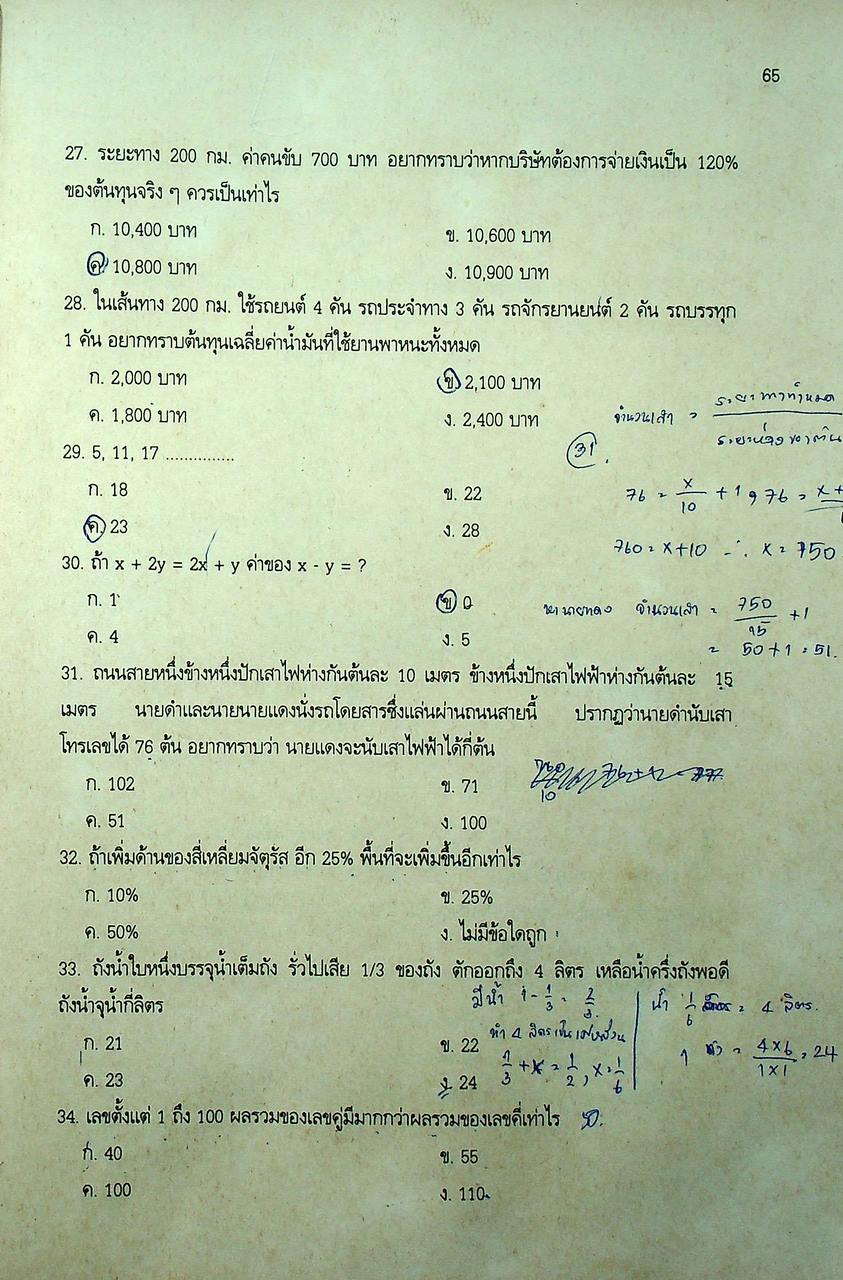 65
27. ระยะทาง 200 กม. ค่าคนขับ 700 บาท อยากทราบว่าหากบริษัทต้องการจ่ายเงินเป็น 120%
ของต้นทุนจริง ๆ ควรเป็นเท่าไร
ก. 10,400 บาท ข. 10,600 บาท
ค. 10,800 บาท ง. 10,900 บาท
28. ในเส้นทาง 200 กม. ใช้รถยนต์ 4 คัน รถประจำทาง 3 คัน รถจักรยานยนต์ 2 คัน รถบรรทุก
1 คัน อยากทราบต้นทุนเฉลี่ยค่าน้ำมันที่ใช้ยานพาหนะทั้งหมด
ก. 2,000 บาท ข. 2,100 บาท
ค. 1,800 บาท ง. 2,400 บาท
จำนวนเสา =
29. 5, 11, 17 ...............
31
ก. 18 ข. 22
76 = x/10 + 1, 76 =
ค. 23 ง. 28
760 = x+10 ∴ x = 750
30. ถ้า x + 2y = 2x + y ค่าของ x - y = ?
ก. 1 ข. 0
จำนวนเสา = 750/15 + 1
ค. 4 ง. 5
= 50+1 = 51.
31. ถนนสายหนึ่งข้างหนึ่งปักเสาไฟห่างกันต้นละ 10 เมตร ข้างหนึ่งปักเสาไฟฟ้าห่างกันต้นละ 15
เมตร นายดำและนายนายแดงนั่งรถโดยสารซึ่งแล่นผ่านถนนสายนี้ ปรากฏว่านายดำนับเสา
โทรเลขได้ 76 ต้น อยากทราบว่า นายแดงจะนับเสาไฟฟ้าได้กี่ต้น
ก. 102 ข. 71
ค. 51 ง. 100
32. ถ้าเพิ่มด้านของสี่เหลี่ยมจัตุรัส อีก 25% พื้นที่จะเพิ่มขึ้นอีกเท่าไร
ก. 10% ข. 25%
ค. 50% ง. ไม่มีข้อใดถูก
33. ถังน้ำใบหนึ่งบรรจุน้ำเต็มถัง รั่วไปเสีย 1/3 ของถัง ตักออกถึง 4 ลิตร เหลือน้ำครึ่งถังพอดี
ถังน้ำจุน้ำกี่ลิตร
มีน้ำ 1 - 1/3 = 2/3
น้ำ 1/6 = 4 ลิตร.
ก. 21 ข. 22
1/3 + x = 1/2, x = 1/6
1 = 4x6/1x1 = 24
ค. 23 ง. 24
34. เลขตั้งแต่ 1 ถึง 100 ผลรวมของเลขคู่มีมากกว่าผลรวมของเลขคี่เท่าไร 50.
ก. 40 ข. 55
ค. 100 ง. 110